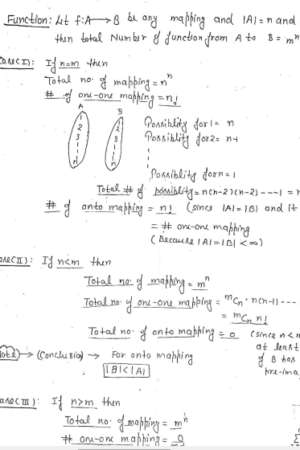 Function: Let f:A→B be any mapping and |A|=n and
then total Number of function from A to B = mⁿ
Case(I): If n=m then
Total no. of mapping = nⁿ
# of one-one mapping = n!
A B
1 1
2 2
3 3
n n
Possiblity for 1 = n
Possiblity for 2 = n-1
Possiblity for n = 1
Total # of possiblity = n(n-2)(n-2)---1 =
# of onto mapping = n! (since |A|=|B| and it
= # one-one mapping
(Because |A|=|B|<∞)
Case(II): If n<m then
Total no. of mapping = mⁿ
Total no. of one-one mapping = ᵐCₙ · n(n-1)---
= ᵐCₙ n!
Total no. of onto mapping = 0 (since n<m
at least
of B has
pre-ima
Note → (Conclusion) → For onto mapping
|B|<|A|
Case III: If n>m then
Total no. of mapping = mⁿ
# one-one mapping = 0